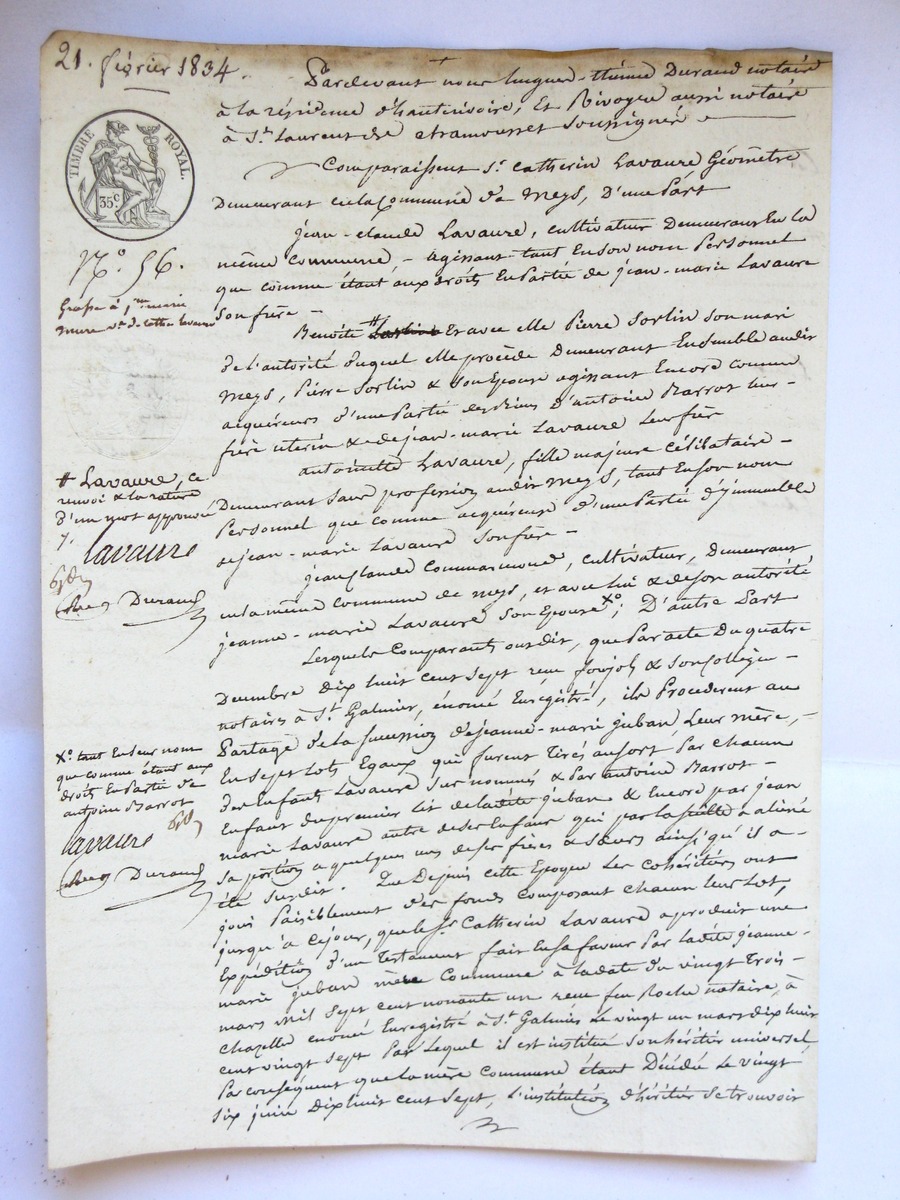 21. février 1834.
TIMBRE ROYAL.
35c.
N.o 56.
Grosse à
Mure ve de Lavaure
Pardevant nous hugues-étienne Durand notaire
à la résidence d'hauterivoire, et Rivoyre aussi notaire
à St. Laurent de chamousset soussignés
Comparaissent Sr. Catherin Lavaure Géomètre
Demeurant en la Commune de Meys, D'une Part
jean-claude Lavaure, cultivateur Demeurant En la
même commune, - agissant tant En son nom Personnel
que comme étant aux droits En Partie de jean-marie Lavaure
son frère -
Benoite # Et avec elle Pierre Sorlin son mari
De l'autorité Duquel elle procède Demeurant Ensemble audit
Meys, Pierre Sorlin & son Epouse agissant Encore comme
acquéreurs d'une Partie des Biens D'antoine Barrot leur -
frère uterin & de jean-marie Lavaure Leur frère
antoinette Lavaure, fille majeure célibataire -
Demeurant sans profession audit Meys, tant En son nom
Personnel que comme acquéreuse d'une Partie d'jmmeuble
de jean-marie Lavaure Son frère -
jean claude Commarmond, cultivateur, Demeurant
en la même commune de Meys, et avec lui & de son autorité
jeanne-marie Lavaure Son Epouse Xo; D'autre Part
Lesquels Comparants ont dit, que Par acte Du quatre
Decembre Dix huit cent Sept reçu & son Collègue -
notaires à St. Galmier, énoncé Enregistré, ils Procederent au
Partage De la succession de jeanne-marie juban Leur mère, -
En sept lots Egaux qui furent Tirés au sort, Par chacun
Des Enfants Lavaure sus nommés & Par antoine Barrot -
Enfant du premier lit de ladite juban & Encore par jean
marie Lavaure autre de ses Enfans qui par la suitte a aliéné
sa portion a quelques uns de ses frères & sœurs ainsi qu'il a -
été susdit. Que Depuis cette Epoque Les cohéritiers ont
joui Paisiblement Des fonds composant chacun leur Lot,
jusqu'à ce jour, que le Sr. Catherin Lavaure a produit une
Expédition d'un Testament fait En sa faveur Par ladite jeanne-
marie juban mère Commune à la date du vingt Trois -
mars mil Sept cent nonante un reçu feu Roche notaire, à
chazelle énoncé Enregistré à St. Galmier Le vingt un mars dix huit
cent vingt sept Par Lequel il est institué son héritier universel,
Par conséquent que la mère Commune étant Décédée Le vingt
six juin Dix huit cent Sept, L'institution d'héritier se trouvoit
# Lavaure, ce
renvoi & la rature
D'un mot approuvés
Lavaure
Durand
Xo tant En leur nom
que comme étant aux
Droits En Partie de
antoine Barrot
Lavaure
Durand